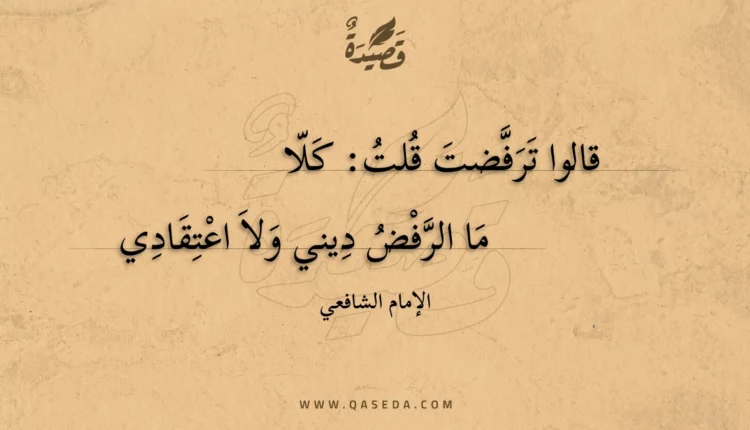 قَصِيْدَةٌ
قالوا تَرَفَّضتَ قُلتُ: كَلّا
مَا الرَّفْضُ دِيني وَلاَ اعْتِقَادِي
الإمام الشافعي
WWW.QASEDA.COM